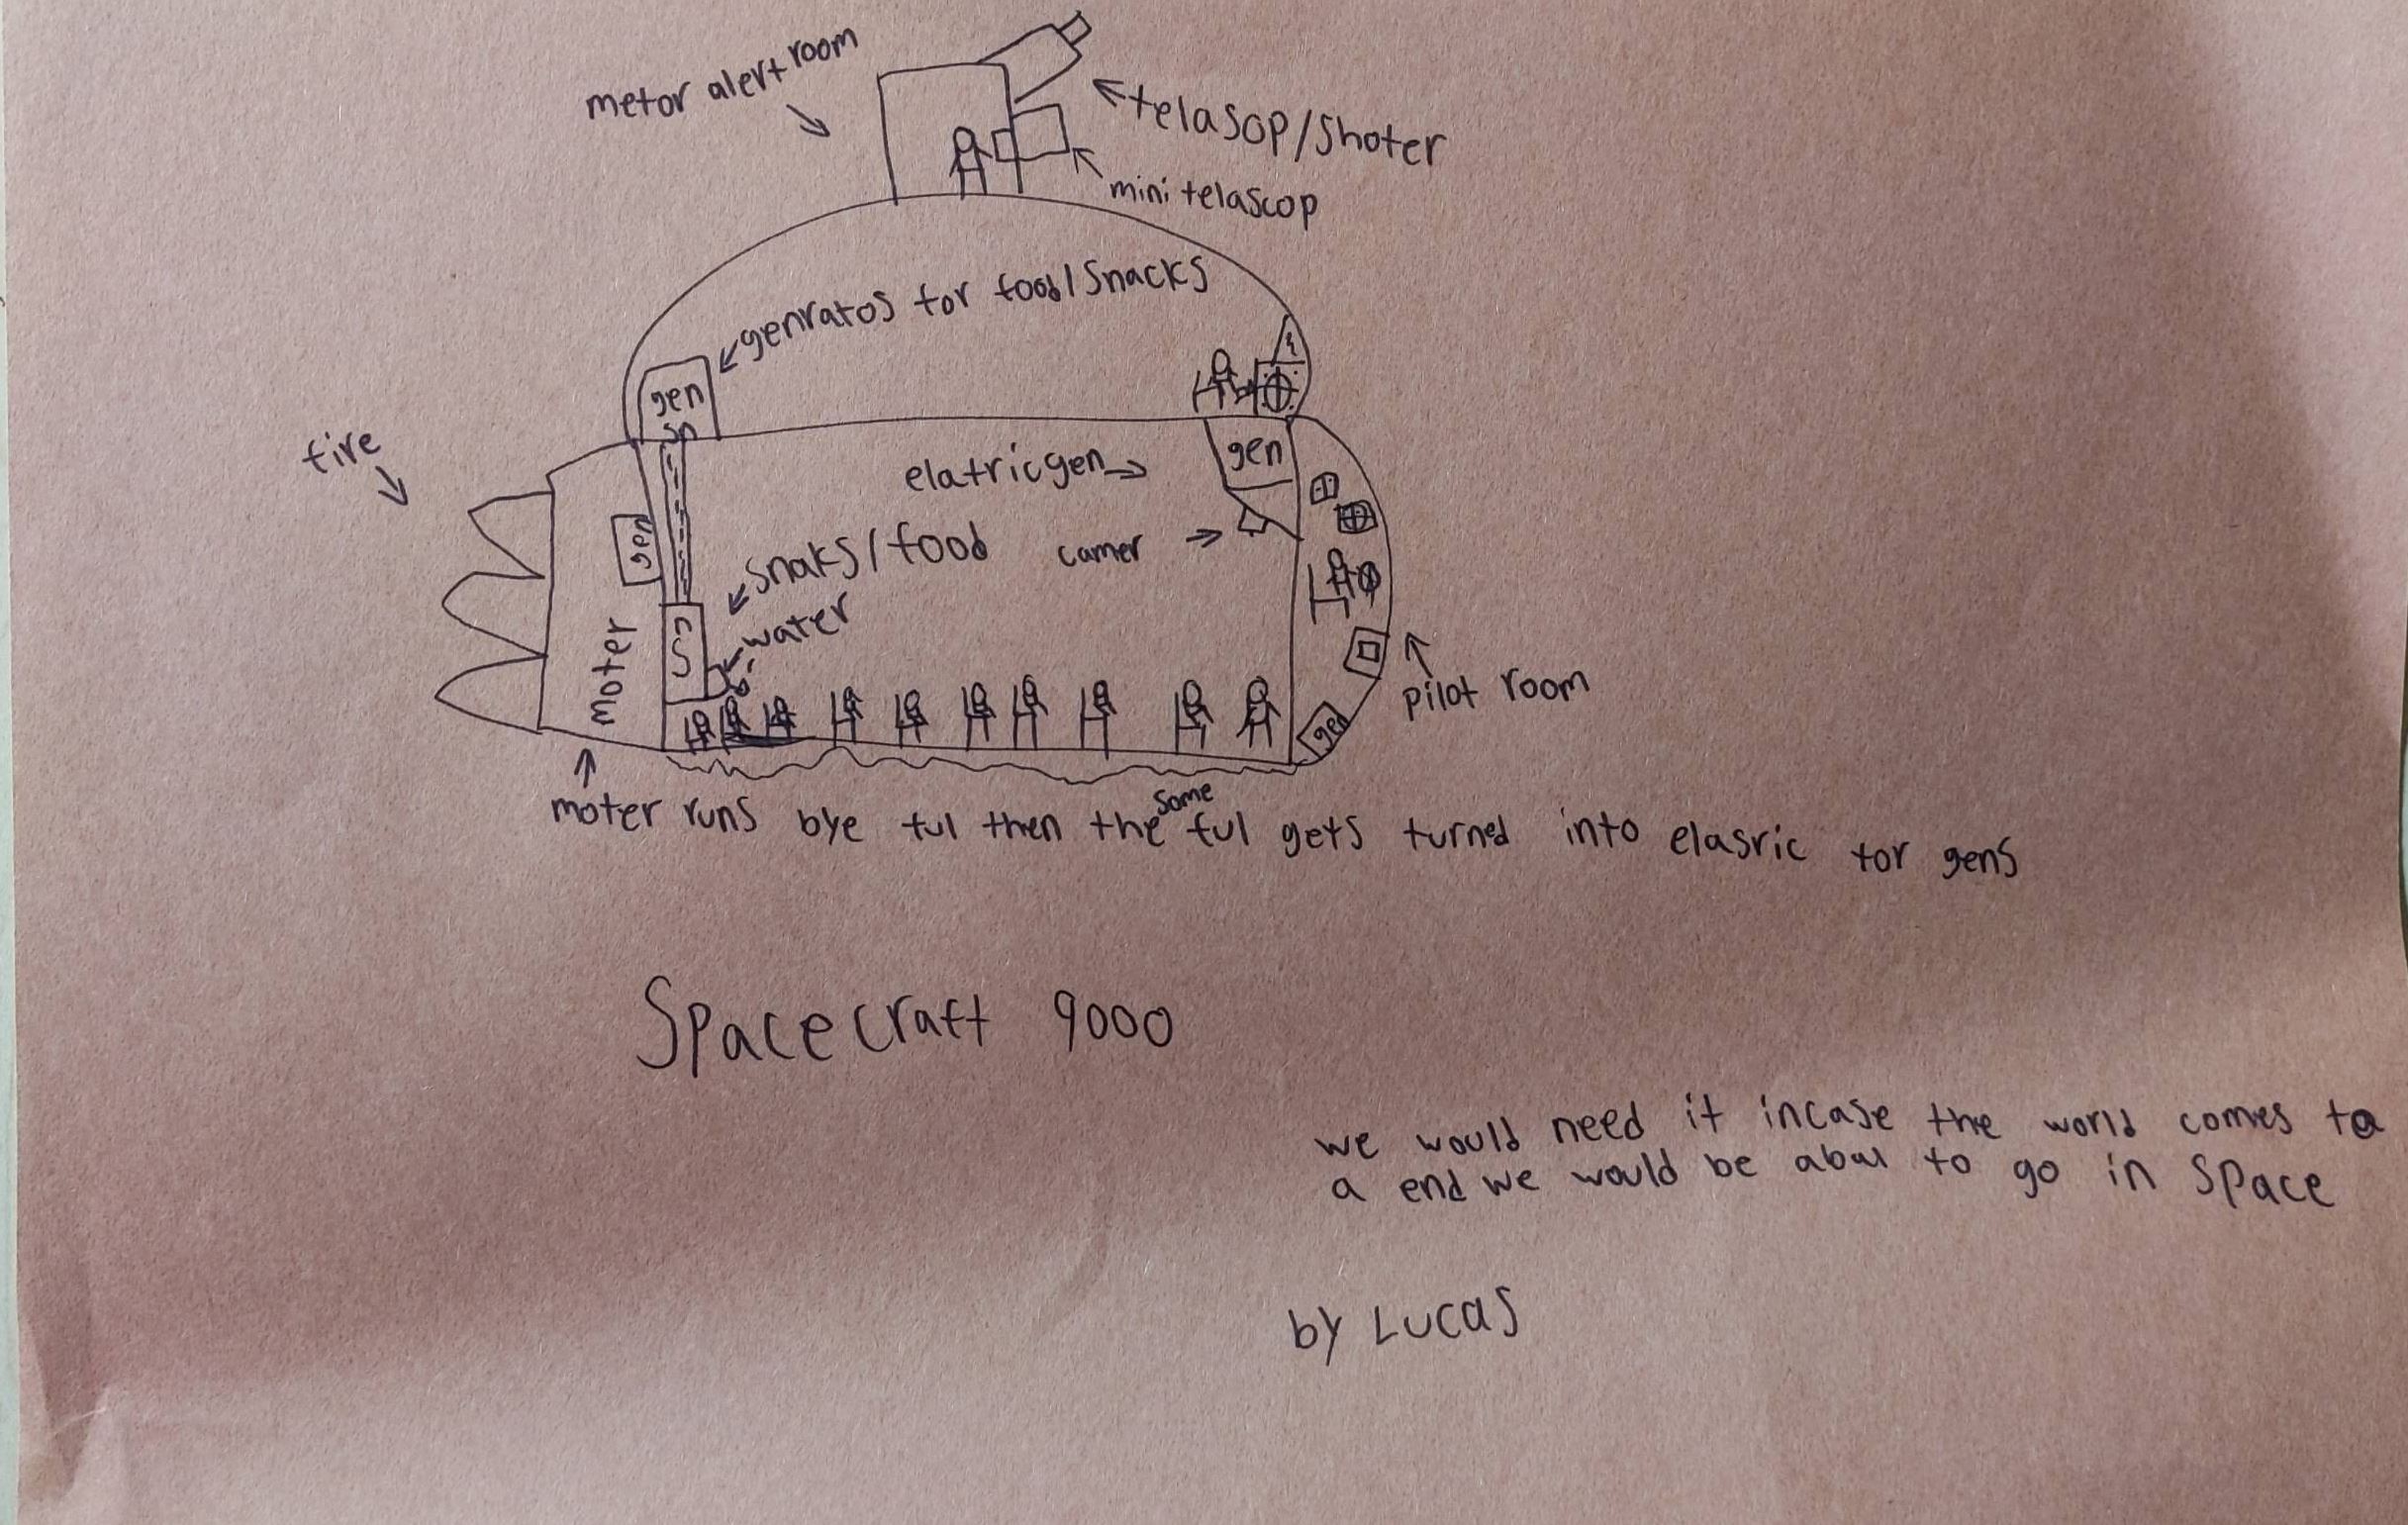 metor alert room
telasop/shoter
mini telascop
genratos for food/snacks
gen
sn
fire
elatric gen
gen
gen
snaks/food
camer
water
sn
moter
pilot room
gen
moter runs bye ful then the some ful gets turned into elasric for gens
Spacecraft 9000
we would need it incase the world comes to
a end we would be abul to go in space
by Lucas